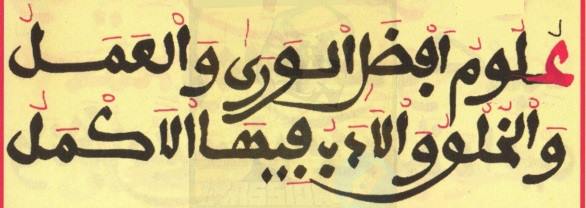 علوم أفضل الورى والعمل
والخلق والأدب فيها الأكمل